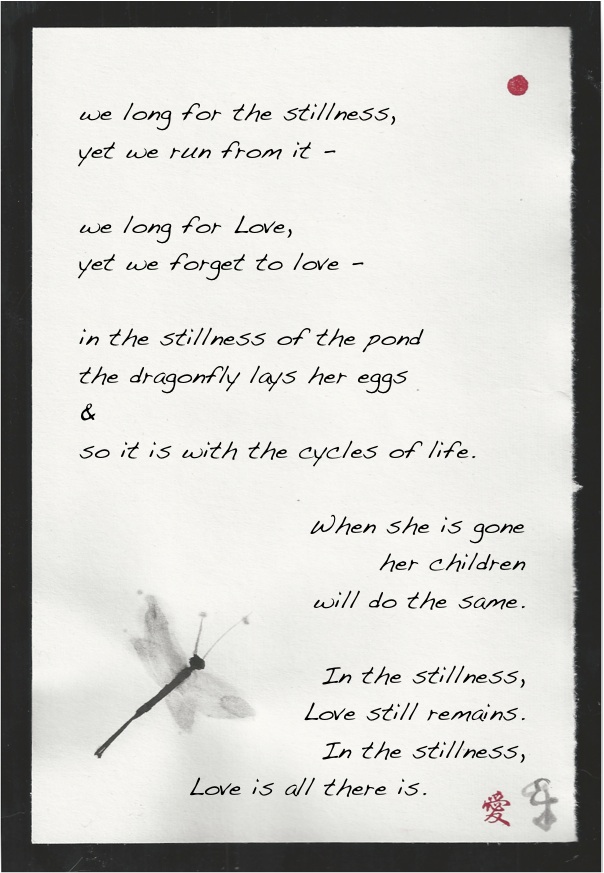 we long for the stillness,
yet we run from it -
we long for Love,
yet we forget to love -
in the stillness of the pond
the dragonfly lays her eggs
&
so it is with the cycles of life.
When she is gone
her children
will do the same.
In the stillness,
Love still remains.
In the stillness,
Love is all there is.
愛